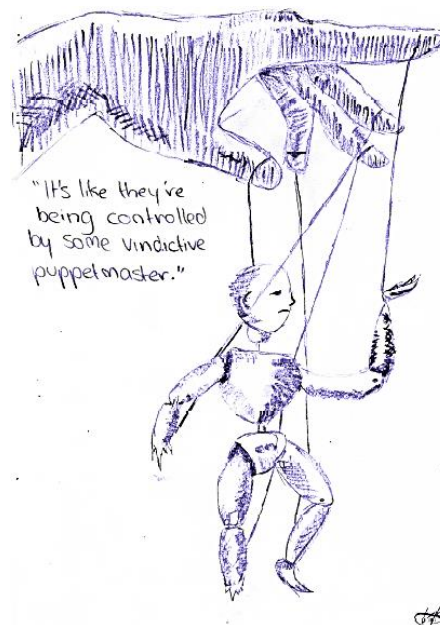 "It's like they're
being controlled
by some vindictive
puppetmaster."